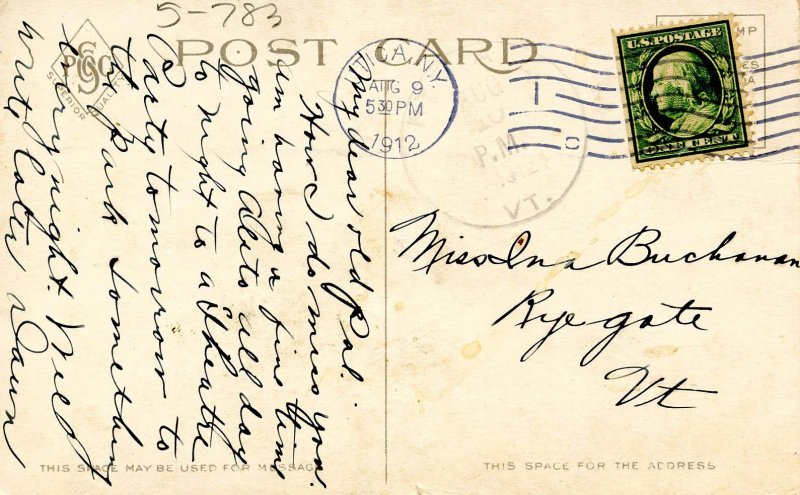 5-783
POST CARD
SUPERIOR QUALITY
UTICA, N.Y.
AUG 9
5 30 PM
1912
AUG
P.M.
1912
VT.
U.S. POSTAGE
ONE CENT
My dear old Pal.
How I do miss you.
am having a fine time
going Auto all day
to night to a Theatre
Party tomorrow to
the Park something
every night. Will
write later
Miss Ina Buchanan
Ryegate
Vt
THIS SPACE MAY BE USED FOR MESSAGE
THIS SPACE FOR THE ADDRESS